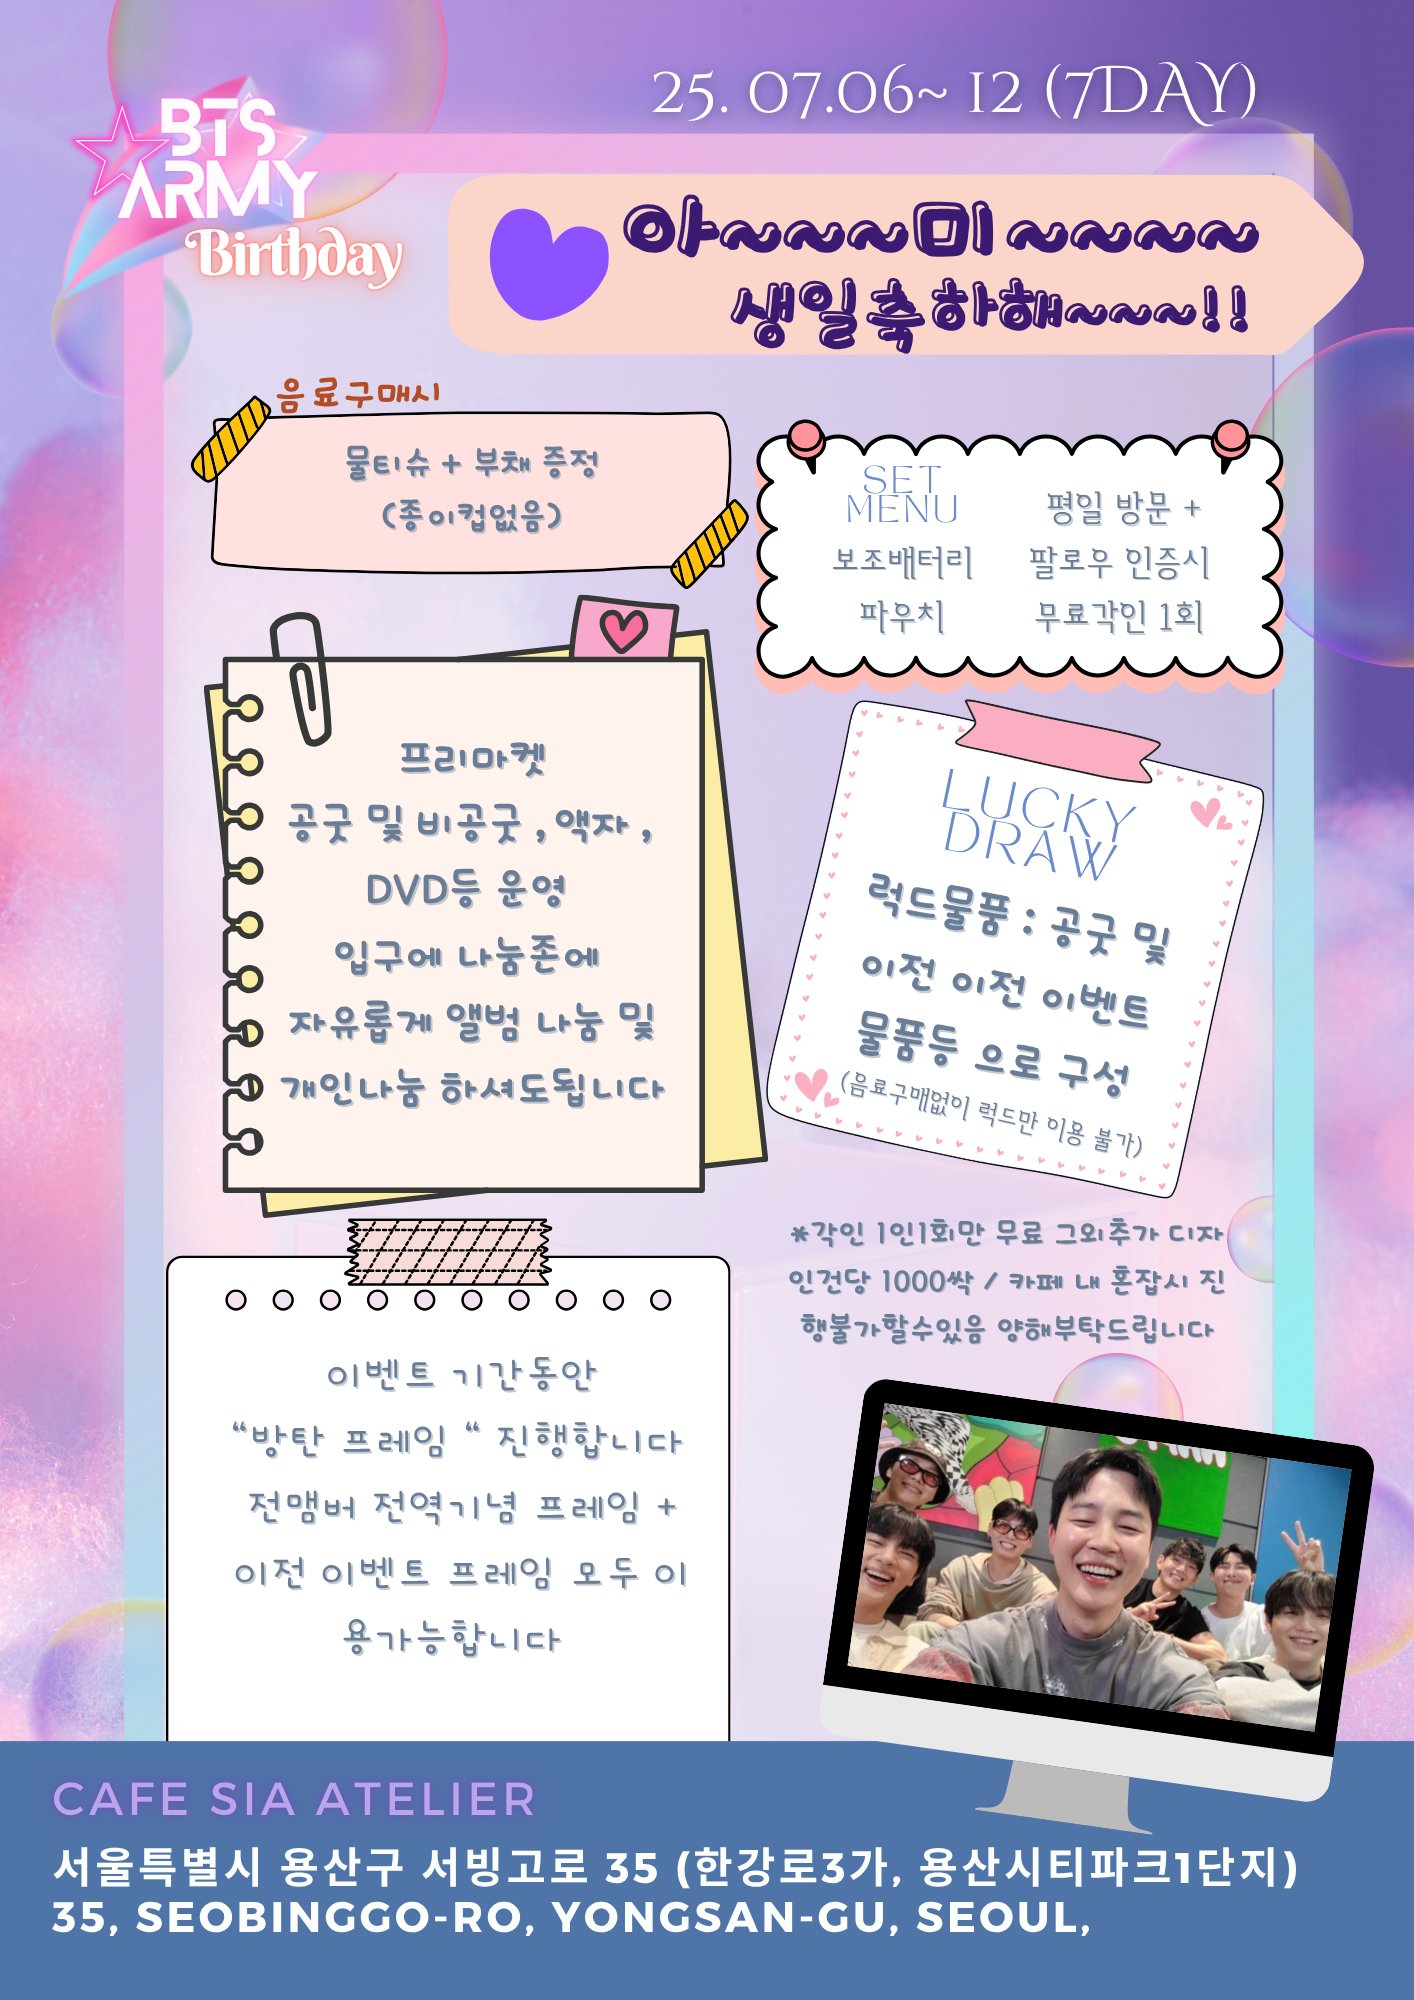 25. 07.06~ 12 (7DAY)
BTS
ARMY
Birthday
야~~~미~~~~
생일축하해~~~!!
음료구매시
물티슈 + 부채 증정
(종이컵없음)
SET
MENU
보조배터리
파우치
평일 방문 +
팔로우 인증시
무료각인 1회
프리마켓
공굿 및 비공굿 , 액자 ,
DVD등 운영
입구에 나눔존에
자유롭게 앨범 나눔 및
개인나눔 하셔도됩니다
LUCKY
DRAW
럭드물품 : 공굿 및
이전 이전 이벤트
물품등 으로 구성
(음료구매없이 럭드만 이용 불가)
*각인 1인1회만 무료 그외추가 디자
인건당 1000싹 / 카페 내 혼잡시 진
행불가할수있음 양해부탁드립니다
이벤트 기간동안
“방탄 프레임 “ 진행합니다
전맴버 전역기념 프레임 +
이전 이벤트 프레임 모두 이
용가능합니다
CAFE SIA ATELIER
서울특별시 용산구 서빙고로 35 (한강로3가, 용산시티파크1단지)
35, SEOBINGGO-RO, YONGSAN-GU, SEOUL,